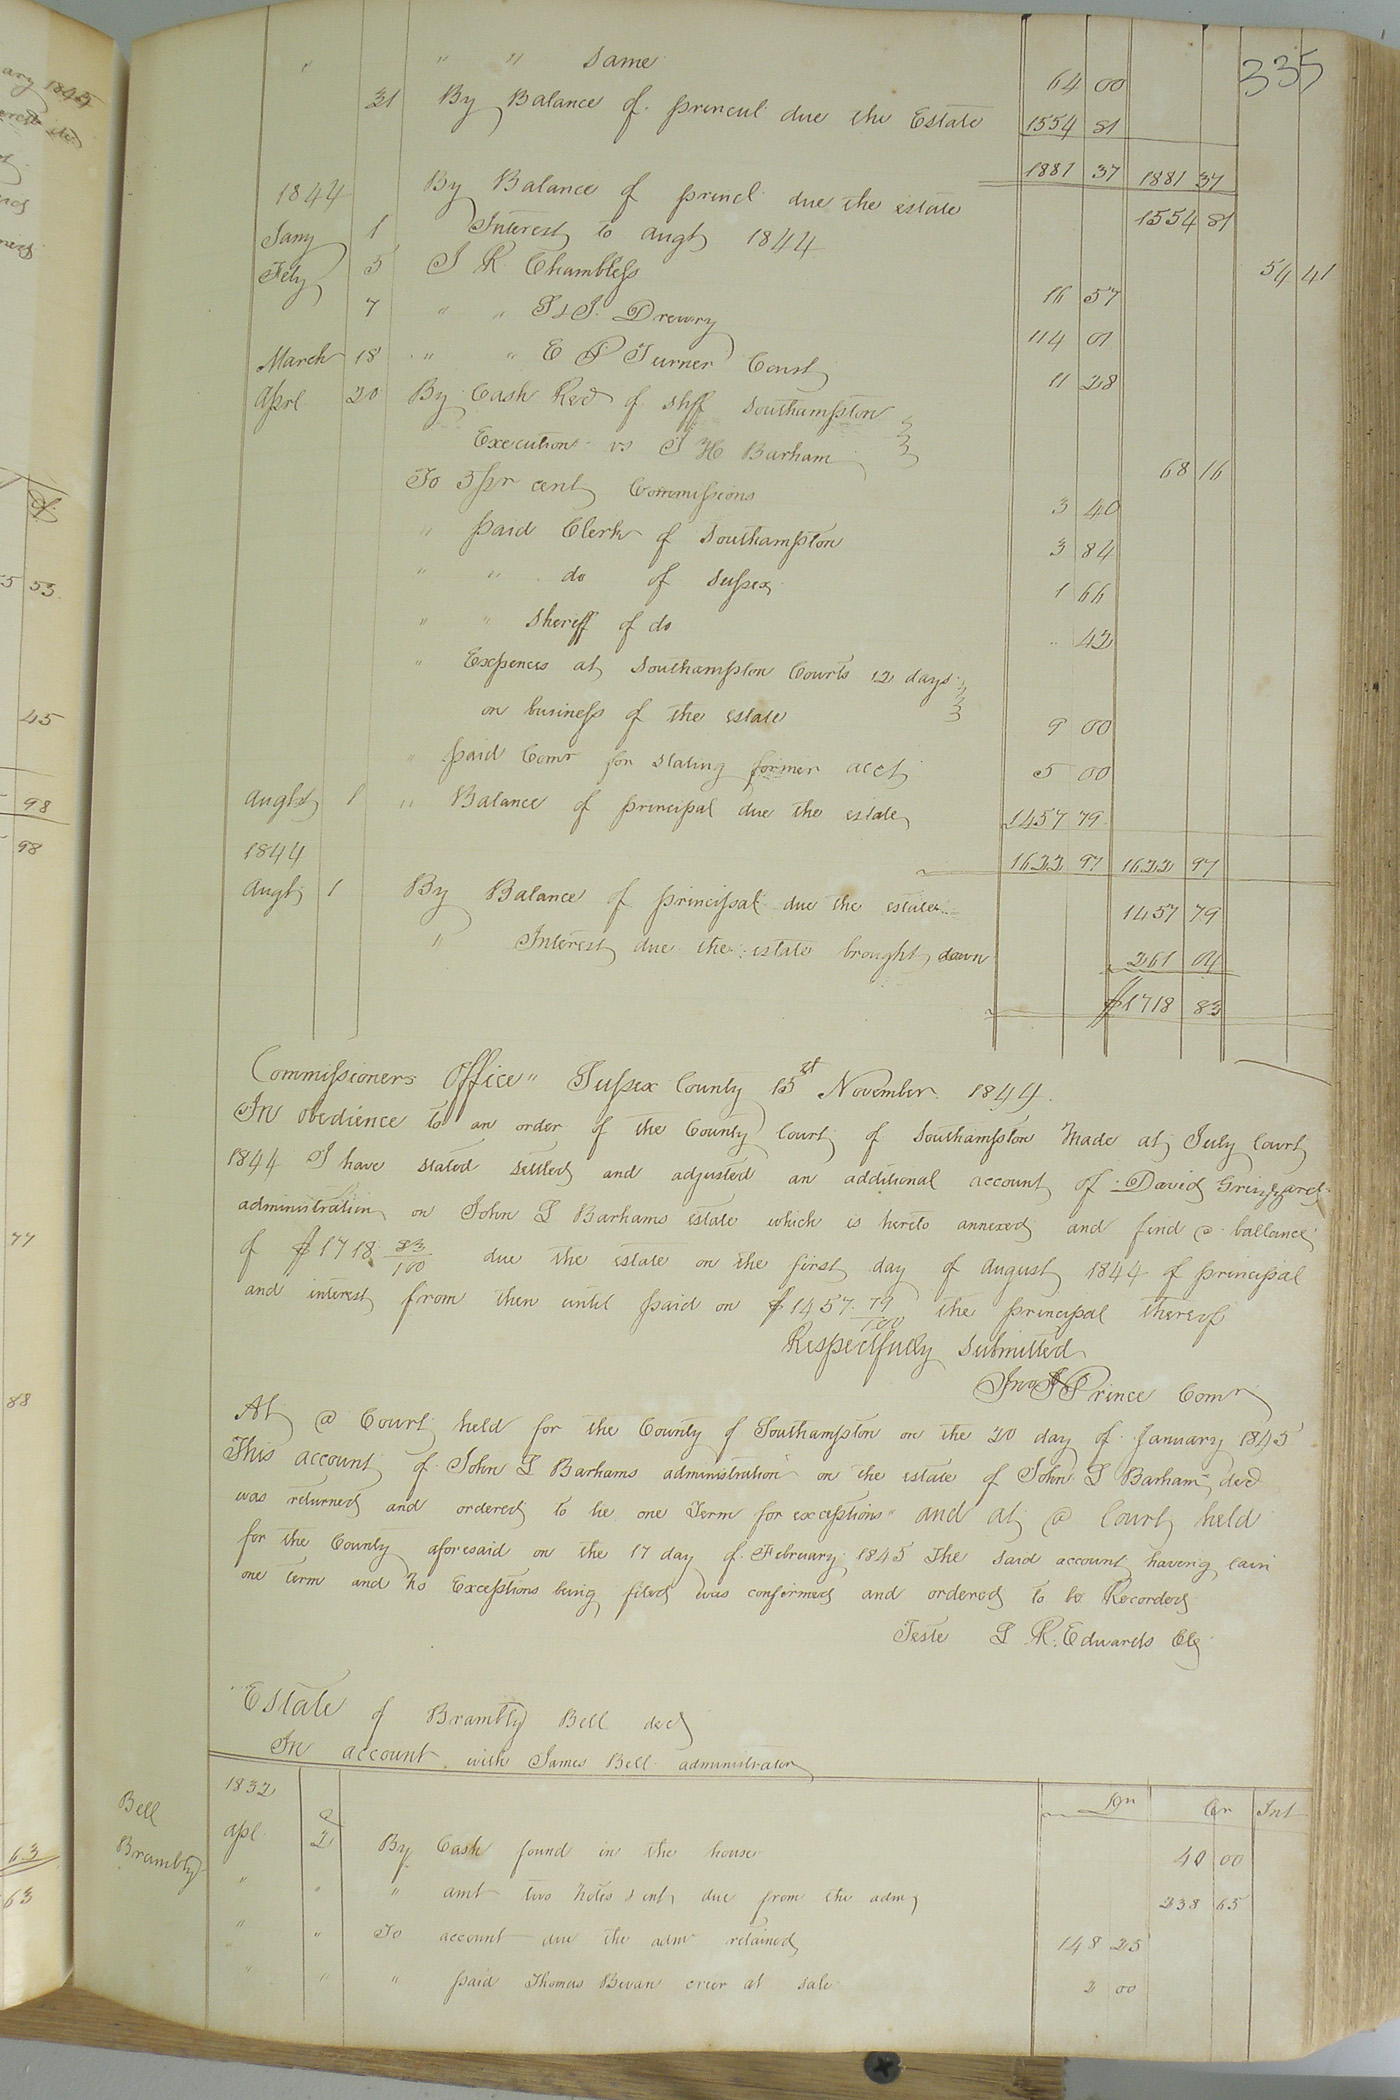 335
" " " same 64 00
31 By Balance of princul due the Estate 1554 81
1881 37 1881 37
1844 By Balance of princl due the estate 1554 81
Jany 1 Interest to augt 1844 54 41
Feby 5 J R Chambless 16 57
7 " " J & J. Drewry 114 01
March 18 " " E P Turner Const 11 28
Aprl 20 By Cash Recd of shff Southampton
Execution vs J H Barham 68 16
To 5 pr cent Commissions 3 40
" paid Clerk of Southampton 3 84
" " do of Sussex 1 66
" " Sheriff of do .. 42
" Expences at Southampton Courts 12 days
on business of the estate 9 00
" paid Comr for stating former acct 5 00
Augst 1 " Balance of principal due the estate 1457 79
1844 1622 97 1622 97
Augt 1 By Balance of principal due the estate 1457 79
" Interest due the estate brought down 261 04
$1718 83
Commissioners Office" Sussex County 15st November 1844.
In obedience to an order of the County Court of Southampton Made at July Court
1844 I have stated settled and adjusted an additional account of David Grizzard
administration on John L Barhams estate which is hereto annexed and find a ballance
of $1718 83/100 due the estate on the first day of August 1844 of principal
and interest from then until paid on $1457. 79/100 the principal thereof
Respectfully Submitted
Jno Prince Comr
At a Court held for the County of Southampton on the 20 day of January 1845
This account of John L Barhams administration on the estate of John L Barham decd
was returned and ordered to lie one Term for exceptions" and at a Court held
for the County aforesaid on the 17 day of February 1845 The said account having lain
one term and No Exceptions being filed was confirmed and ordered to be Recorded
Teste L R. Edwards Clk
Estate of Brambly Bell decd
In account with James Bell administrator
1832 Dr Cr Int
Bell
Brambly
Apl 2 By Cash found in the house 40 00
" " " amt two notes & int due from the adm 238 65
" " To account due the admr retained 148 25
" " " paid Thomas Bevan crier at sale 2 00